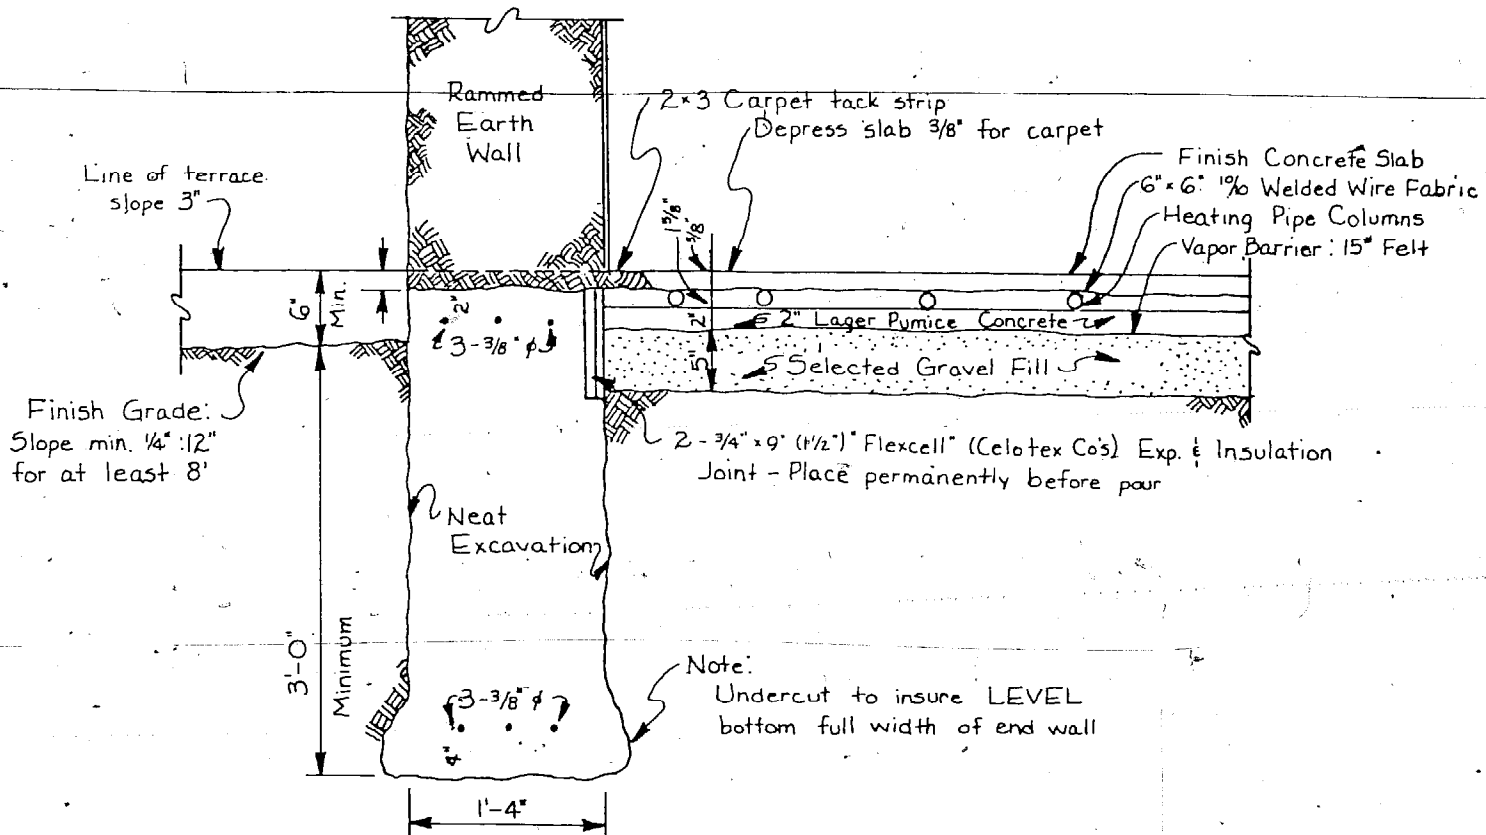 Rammed
Earth
Wall
2×3 Carpet tack strip
Depress slab 3/8" for carpet
Line of terrace
slope 3"
Finish Concrete Slab
6"×6" 10/10 Welded Wire Fabric
Heating Pipe Columns
Vapor Barrier: 15# Felt
1 5/8"
3/8"
6"
Min.
2"
3-3/8" φ
2"
2" Lager Pumice Concrete
5"
Selected Gravel Fill
Finish Grade:
Slope min. 1/4":12"
for at least 8'
2-3/4"×9" (1 1/2") "Flexcell" (Celotex Co's) Exp. & Insulation
Joint - Place permanently before pour
Neat
Excavation
3'-0"
Minimum
3-3/8" φ
4"
Note:
Undercut to insure LEVEL
bottom full width of end wall
1'-4"